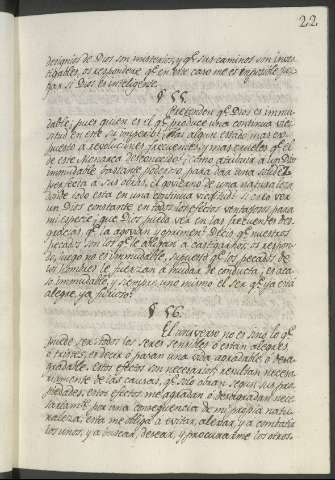 22
designios de Dios son misterios, y q.e sus caminos son inves-
tigables, os respondere q.e en este caso me es imposible juz-
gar si Dios es inteligente.
§ 55.
Pretenden q.e Dios es inmu-
table; pues quien es el q.e produce una continua vicis-
situd en este su imperio? Hay algun estado mas ex-
puesto a revoluciones frecuentes y mas crueles q.e el
de este Monarca desconocido? Como atribuir a un Dios
inmutable bastante poderoso, para dar una solidez
perfecta a sus obras, el govierno de una naturaleza
donde todo esta en una continua vicissitud? Si creo ver
un Dios constante en todos los efectos ventajosos para
mi especie, que Dios puedo ver en las frecuentes des-
gracias, q.e la agovian y oprimen? Decis q.e nuestros
pecados son los q.e le obligan a castigarnos; os respon-
do, luego no es inmutable, supuesto q.e los pecados de
los hombres le fuerzan a mudar de conducta; es aca-
so inmutable, y siempre uno mismo el ser q.e ya esta
alegre, ya furioso?
§ 56.
El universo no es sino lo q.e
puede ser: todos los seres sensibles o estan alegres,
o tristes, es decir o pasan una vida agradable, o desa-
gradable. Estos efectos son necesarios; resultan necesa-
riamente de las causas, q.e no obran segun sus pro-
piedades; estos efectos me agradan o desagradan nece-
sariam.te por una consequencia de mi propia natu-
raleza; esta me obliga a evitar, alexar, y a combatir
los unos, y a buscar, desear, y procurarme los otros.